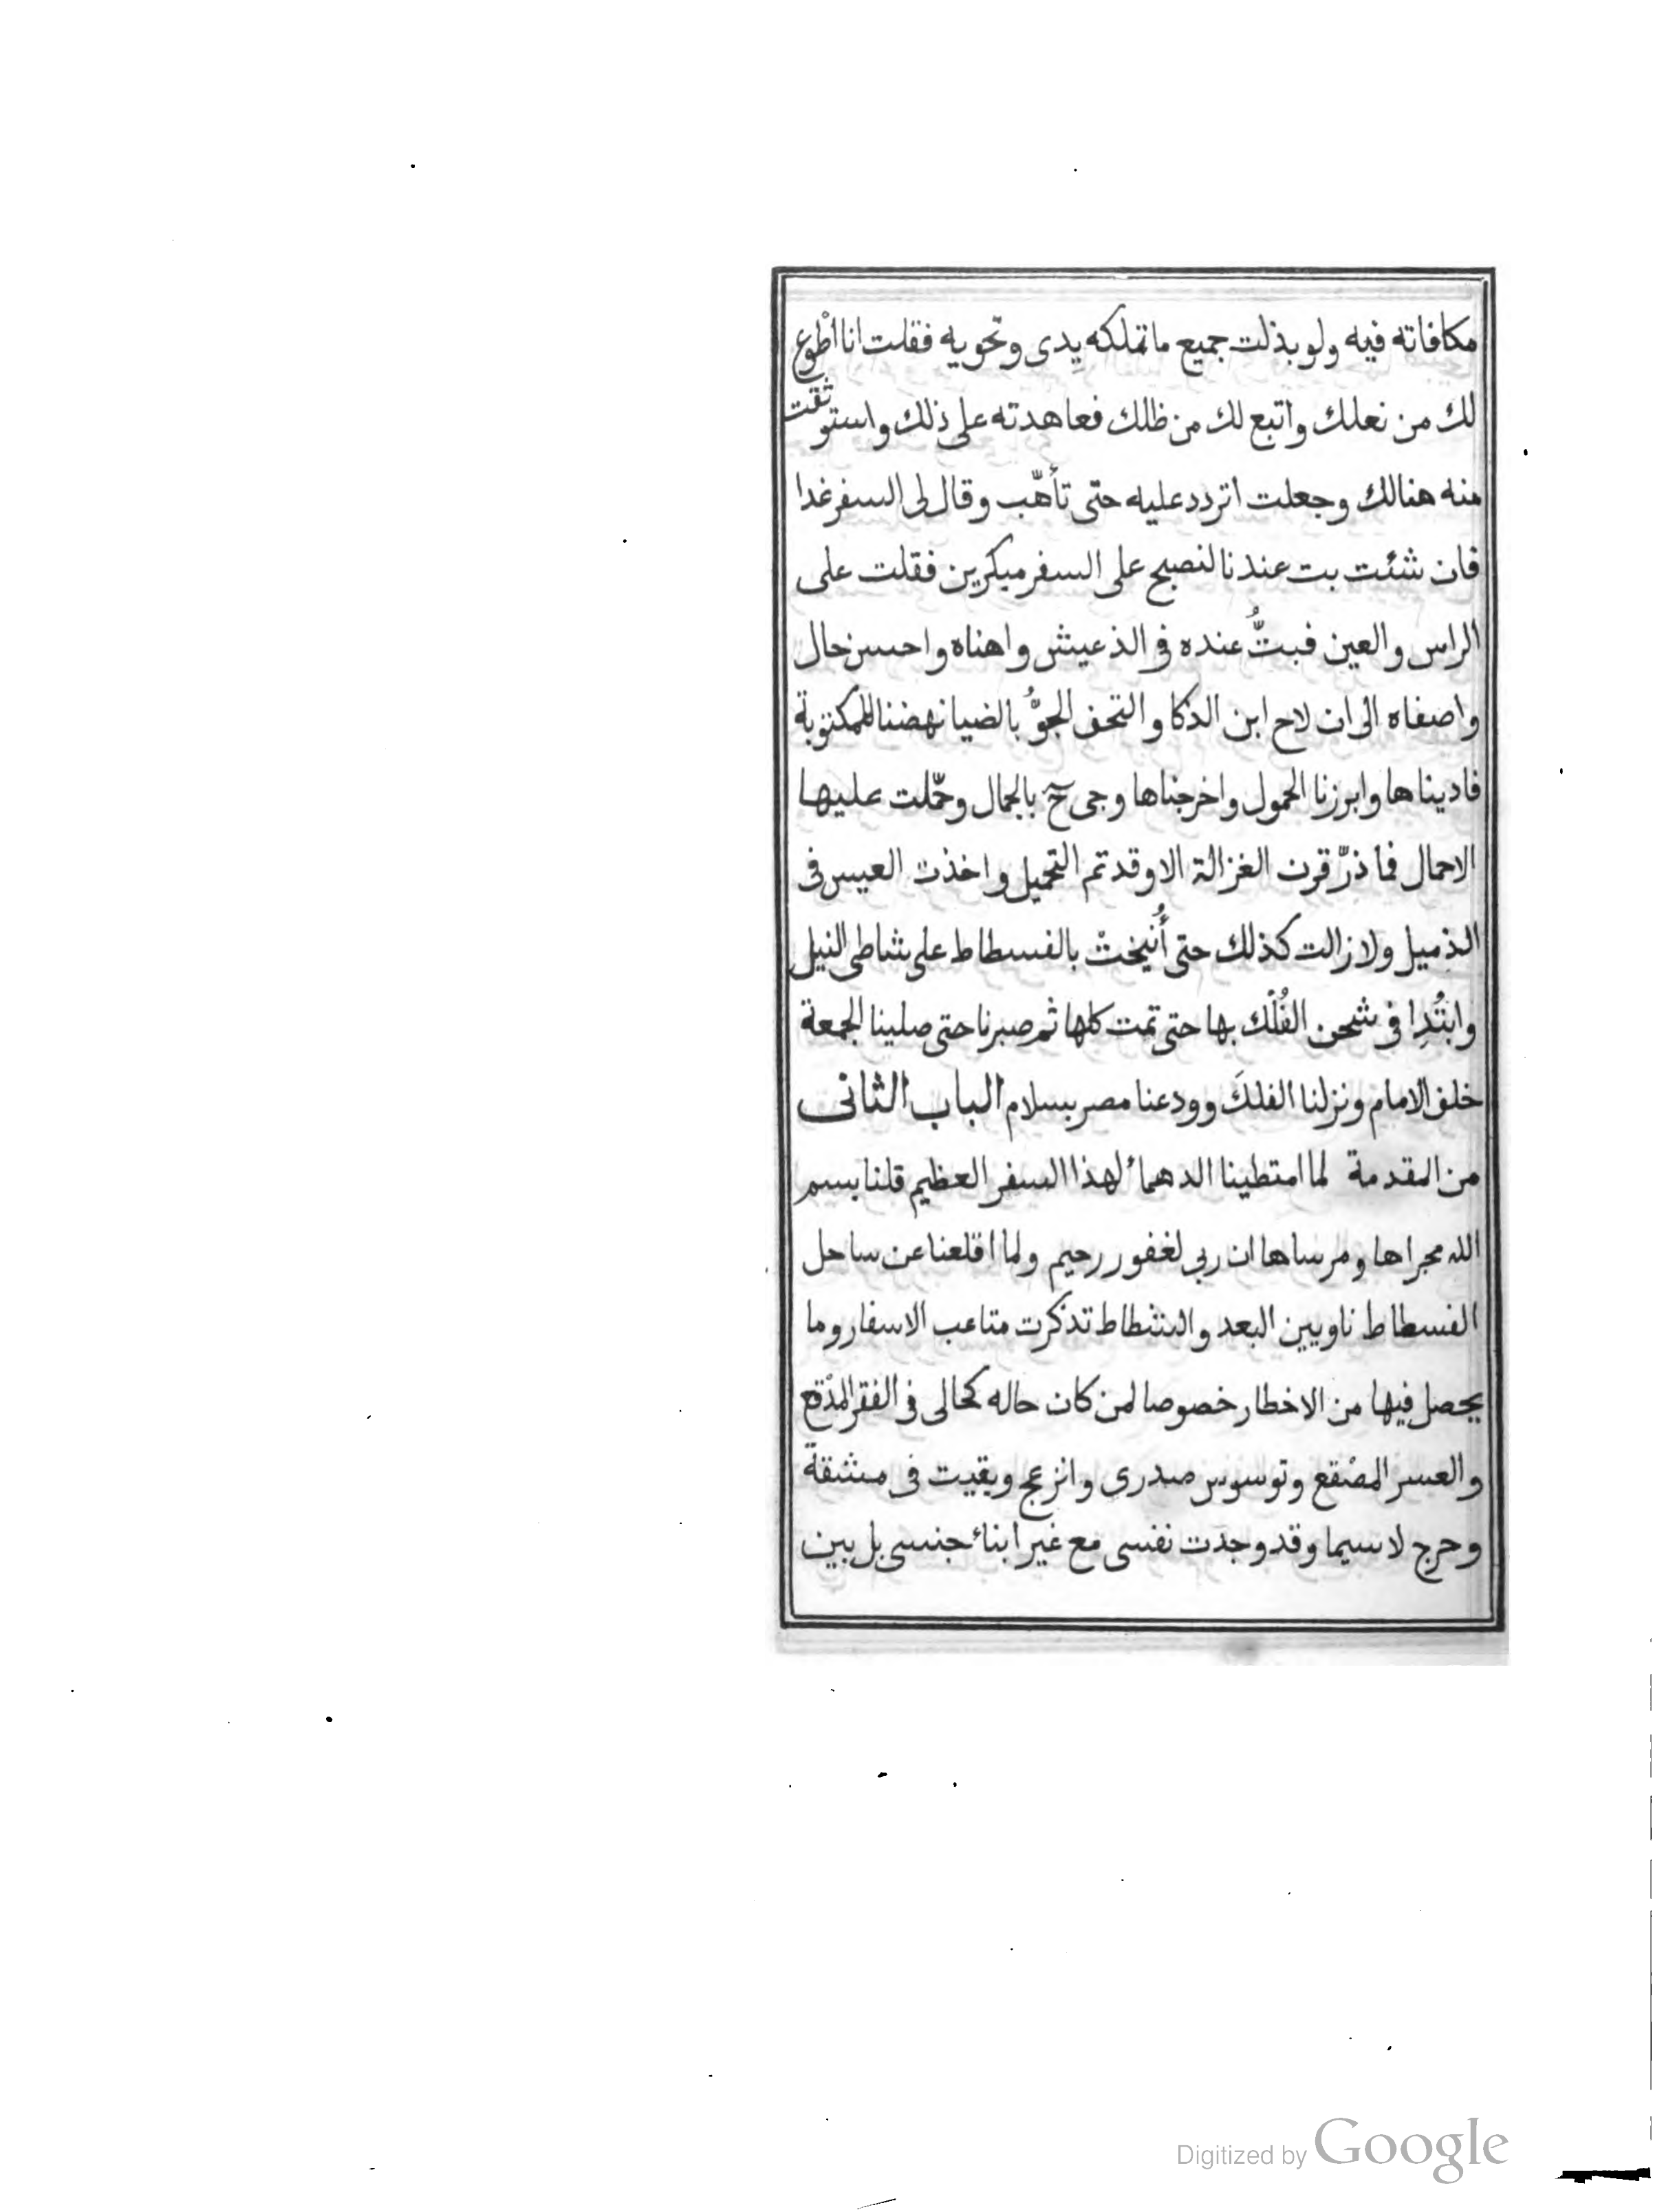 مكافاته فيه ولو بذلت جميع ما تملكه يدى وتحويه فقلت انا اطْوع
لك من نعلك واتبع لك من ظلك فعاهدته على ذلك واستوثقت
منه هنالك وجعلت اتردد عليه حتى تأهّب وقال لى السفر غدا
فان شئت بت عندنا لنصبح على السفر مبكرين فقلت على
الراس والعين فبتُّ عنده فى الذ عيش واهناه واحسن حال
واصفاه الى ان لاح ابن الذكا والتحف الجوُّ بالضيا نهضنا للمكتوبة
فاديناها وابرزنا الحمول واخرجناها وجى حٓ بالجمال وحمّلت عليها
الاحمال فما ذرّ قرن الغزالة الا وقد تم التحميل واخذت العيس فى
الذميل ولا زالت كذلك حتى أُنيخثْ بالفسطاط على شاطى النيل
وابتُدِا فى شحن الفُلْك بها حتى تمت كلها ثم صبرنا حتى صلينا الجمعة
خلف الامام ونزلنا الفلكَ وودعنا مصر بسلام الباب الثانى
من المقدمة لما امتطينا الدهماء لهذا السفر العظيم قلنا بسم
الله مجراها ومرساها ان ربى لغفور رحيم ولما اقلعنا عن ساحل
الفسطاط ناويين البعد والشطاط تذكرت متاعب الاسفار وما
يحصل فيها من الاخطار خصوصا لمن كان حاله كحالى فى الفقر المدْقع
والعسر المضْقع وتوسوس صدرى وانزعج وبقيت فى مشقة
وحرج لا سيما وقد وجدت نفسى مع غير ابناء جنسى بل بين
Digitized by Google